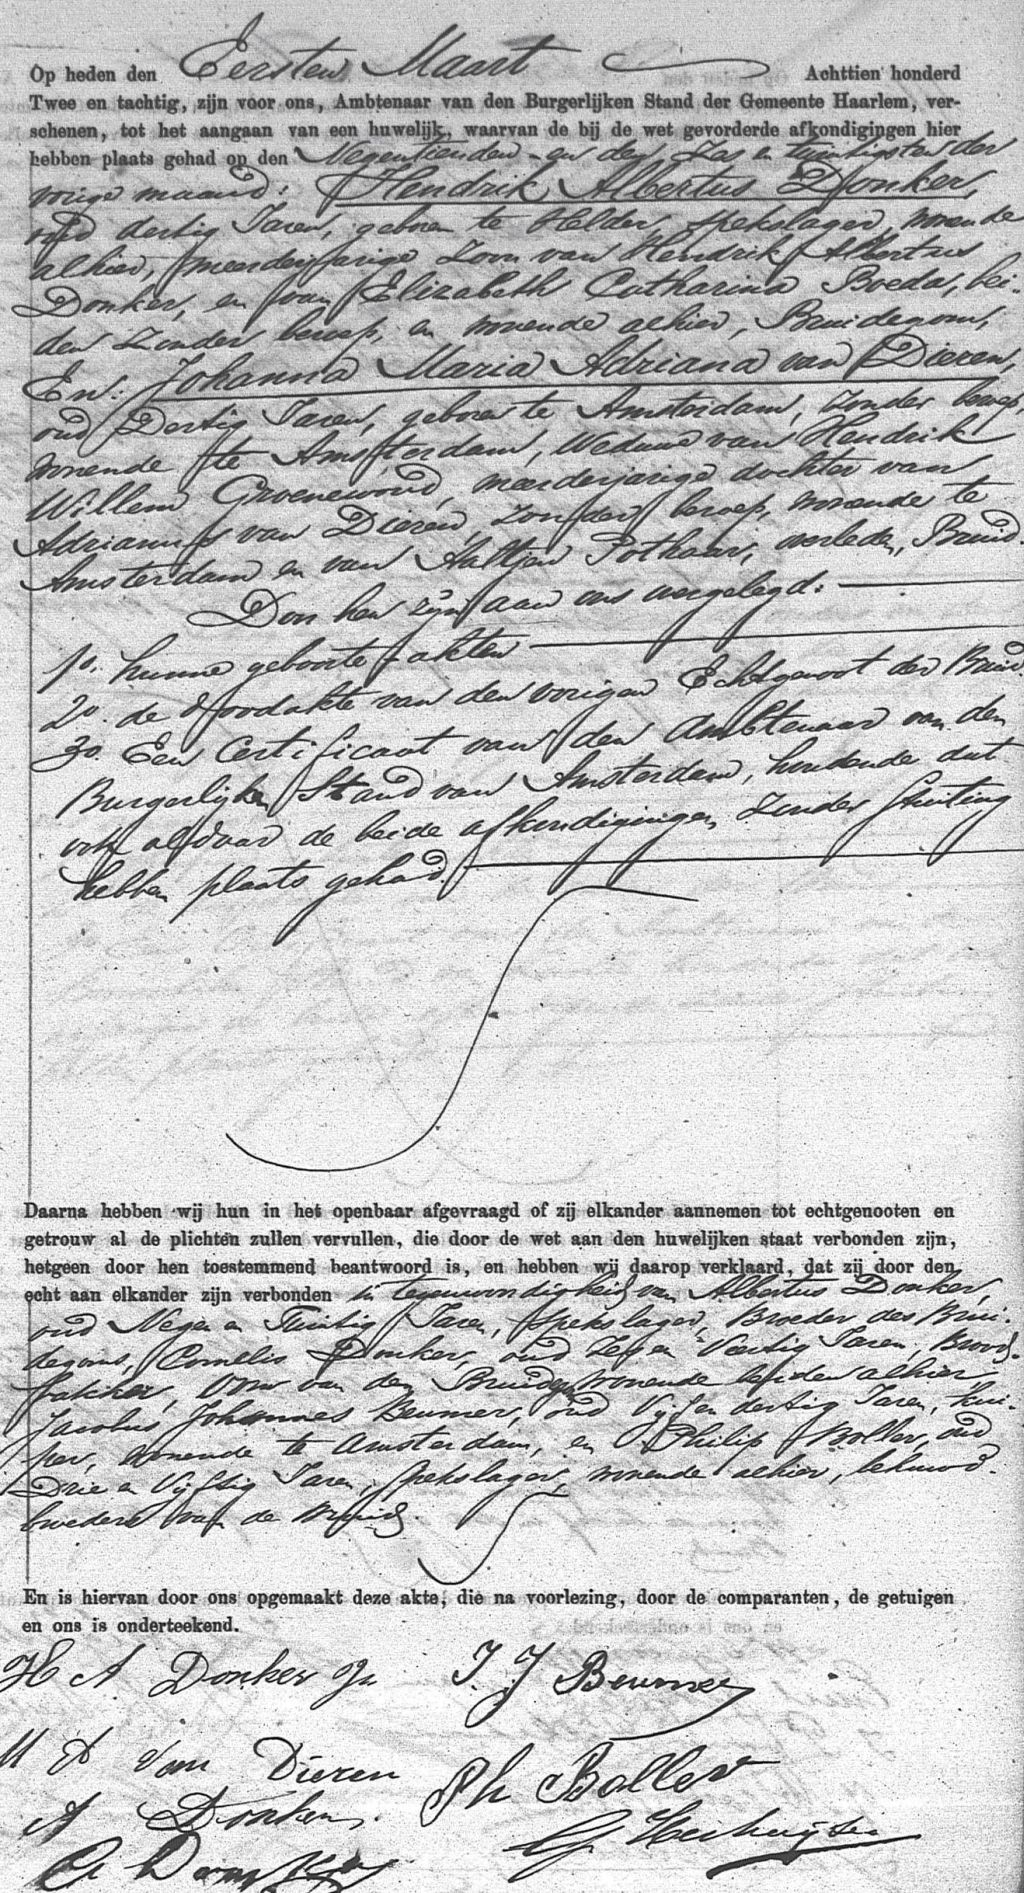 Op heden den Eersten Maart Achttien honderd
Twee en tachtig, zijn voor ons, Ambtenaar van den Burgerlijken Stand der Gemeente Haarlem, ver-
schenen, tot het aangaan van een huwelijk, waarvan de bij de wet gevorderde afkondigingen hier
hebben plaats gehad op den Negentienden en den Zes en twintigsten der
vorige maand: Hendrik Albertus Donker,
oud dertig Jaren, geboren te Helder, spekslager, wonende
alhier, meerderjarige Zoon van Hendrik Albertus
Donker, en van Elizabeth Catharina Boeda, bei-
den Zonder beroep, en wonende alhier, Bruidegom,
En: Johanna Maria Adriana van Dieren,
oud Dertig Jaren, geboren te Amsterdam, Zonder beroep,
wonende te Amsterdam, Weduwe van Hendrik
Willem Groenewoud, meerderjarige dochter van
Adrianus van Dieren, zonder beroep, wonende te
Amsterdam en van Aaltjen Pothaar, overleden, Bruid.
Door hen zijn aan ons overgelegd:
1o. hunne geboorte-akten
2o. de doodakte van den vorigen Echtgenoot der Bruid.
3o. Een Certificaat van den Ambtenaar van den
Burgerlijken Stand van Amsterdam, houdende dat
ook aldaar de beide afkondigingen Zonder stuiting
hebben plaats gehad.
Daarna hebben wij hun in het openbaar afgevraagd of zij elkander aannemen tot echtgenooten en
getrouw al de plichten zullen vervullen, die door de wet aan den huwelijken staat verbonden zijn,
hetgeen door hen toestemmend beantwoord is, en hebben wij daarop verklaard, dat zij door den
echt aan elkander zijn verbonden in tegenwoordigheid van Albertus Donker,
oud Negen en Twintig Jaren, Spekslager, Broeder des Brui-
degoms, Cornelis Donker, oud Zes en Veertig Jaren, Brood-
bakker, Oom van den Bruidegom wonende beiden alhier,
Jacobus Johannes Beumer, oud Vijf en dertig Jaren, kui-
per, wonende te Amsterdam, en Philip Boller, oud
Drie en Vijftig Jaren, spekslager, wonende alhier, behuwd-
broeders van de Bruid.
En is hiervan door ons opgemaakt deze akte, die na voorlezing, door de comparanten, de getuigen
en ons is onderteekend.
H A Donker Jr J. J Beumer
M A van Dieren Ph Boller
A Donker
C Donker